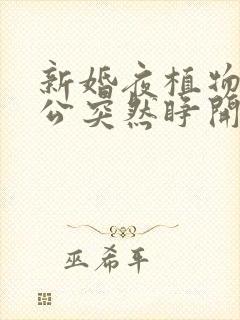 新婚夜植物
公突然睁開
巫希平